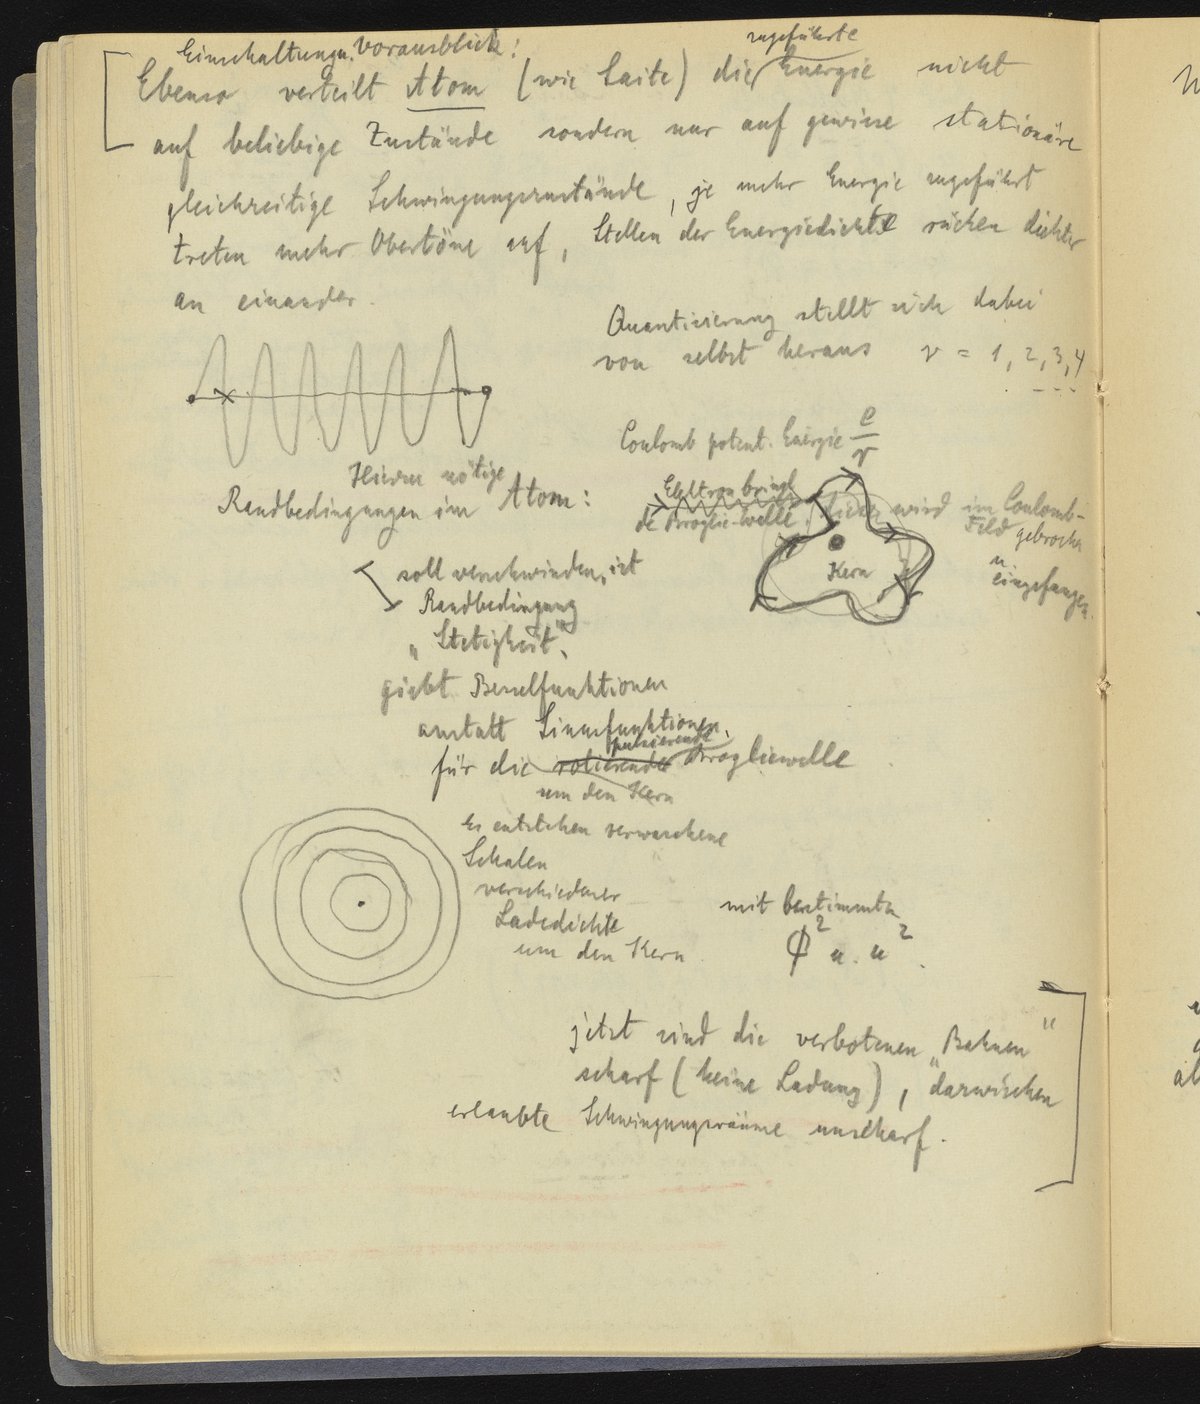 Einschaltung u. Vorausblick:
zugeführte
Ebenso verteilt Atom (wie Saite) die Energie nicht
auf beliebige Zustände sondern nur auf gewisse stationäre
gleichzeitige Schwingungszustände, je mehr Energie zugeführt
treten mehr Obertöne auf, Stellen der Energiedichte rücken dichter
an einander.
Quantisierung stellt sich dabei
von selbst heraus ν = 1, 2, 3, 4
---
Coulomb potent. Energie e/r
Hierzu nötige
Randbedingungen im Atom:
Elektron bringt
de Broglie-Welle, diese wird im Coulomb-
Feld gebrochen
u.
eingefangen.
Kern
soll verschwinden, ist
Randbedingung
„Stetigkeit“,
giebt Besselfunktionen
anstatt Sinusfunktionen,
pulsierende
für die rotierende Brogliewelle
um den Kern
Es entstehen verwaschene
Schalen
verschiedener
Ladedichte
um den Kern
mit bestimmten
ϕ² u. u².
jetzt sind die verbotenen „Bahnen“
scharf (keine Ladung), dazwischen
erlaubte Schwingungsräume unscharf.